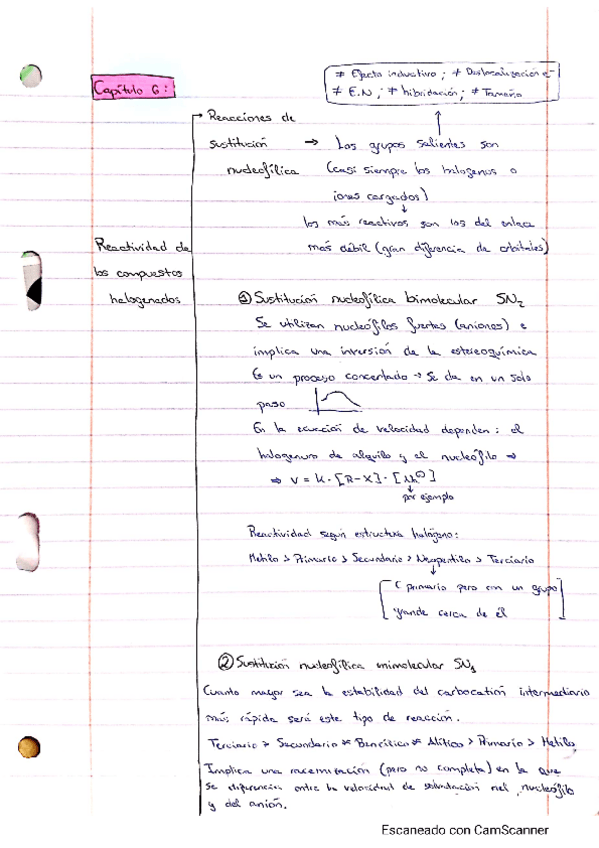 ≠ Efecto inductivo; ≠ Deslocalización e-
Capítulo 6:
≠ E.N; ≠ hibridación; ≠ Tamaño
Reacciones de
sustitución → Los grupos salientes son
nucleofílica (casi siempre los halógenos o
iones cargados)
los más reactivos son los del enlace
Reactividad de más débil (gran diferencia de orbitales)
los compuestos
halogenados
① Sustitución nucleofílica bimolecular SN2
Se utilizan nucleófilos fuertes (aniones) e
implica una inversión de la estereoquímica
Es un proceso concertado → Se da en un solo
paso
En la ecuación de velocidad dependen: el
halogenuro de alquilo y el nucleófilo ⇒
⇒ v = k · [R-X] ·
por ejemplo
Reactividad según estructura halógeno:
Metilo > Primario > Secundario > Neopentilo > Terciario
primario pero con un grupo
grande cerca de él
② Sustitución nucleofílica unimolecular SN1
Cuanto mayor sea la estabilidad del carbocatión intermediario
más rápida será este tipo de reacción.
Terciario > Secundario ≈ Bencílico ≈ Alílico > Primario > Metilo
Implica una racemización (pero no completa) en la que
se diferencian entre la velocidad de nucleófilo
y del anión.
Escaneado con CamScanner